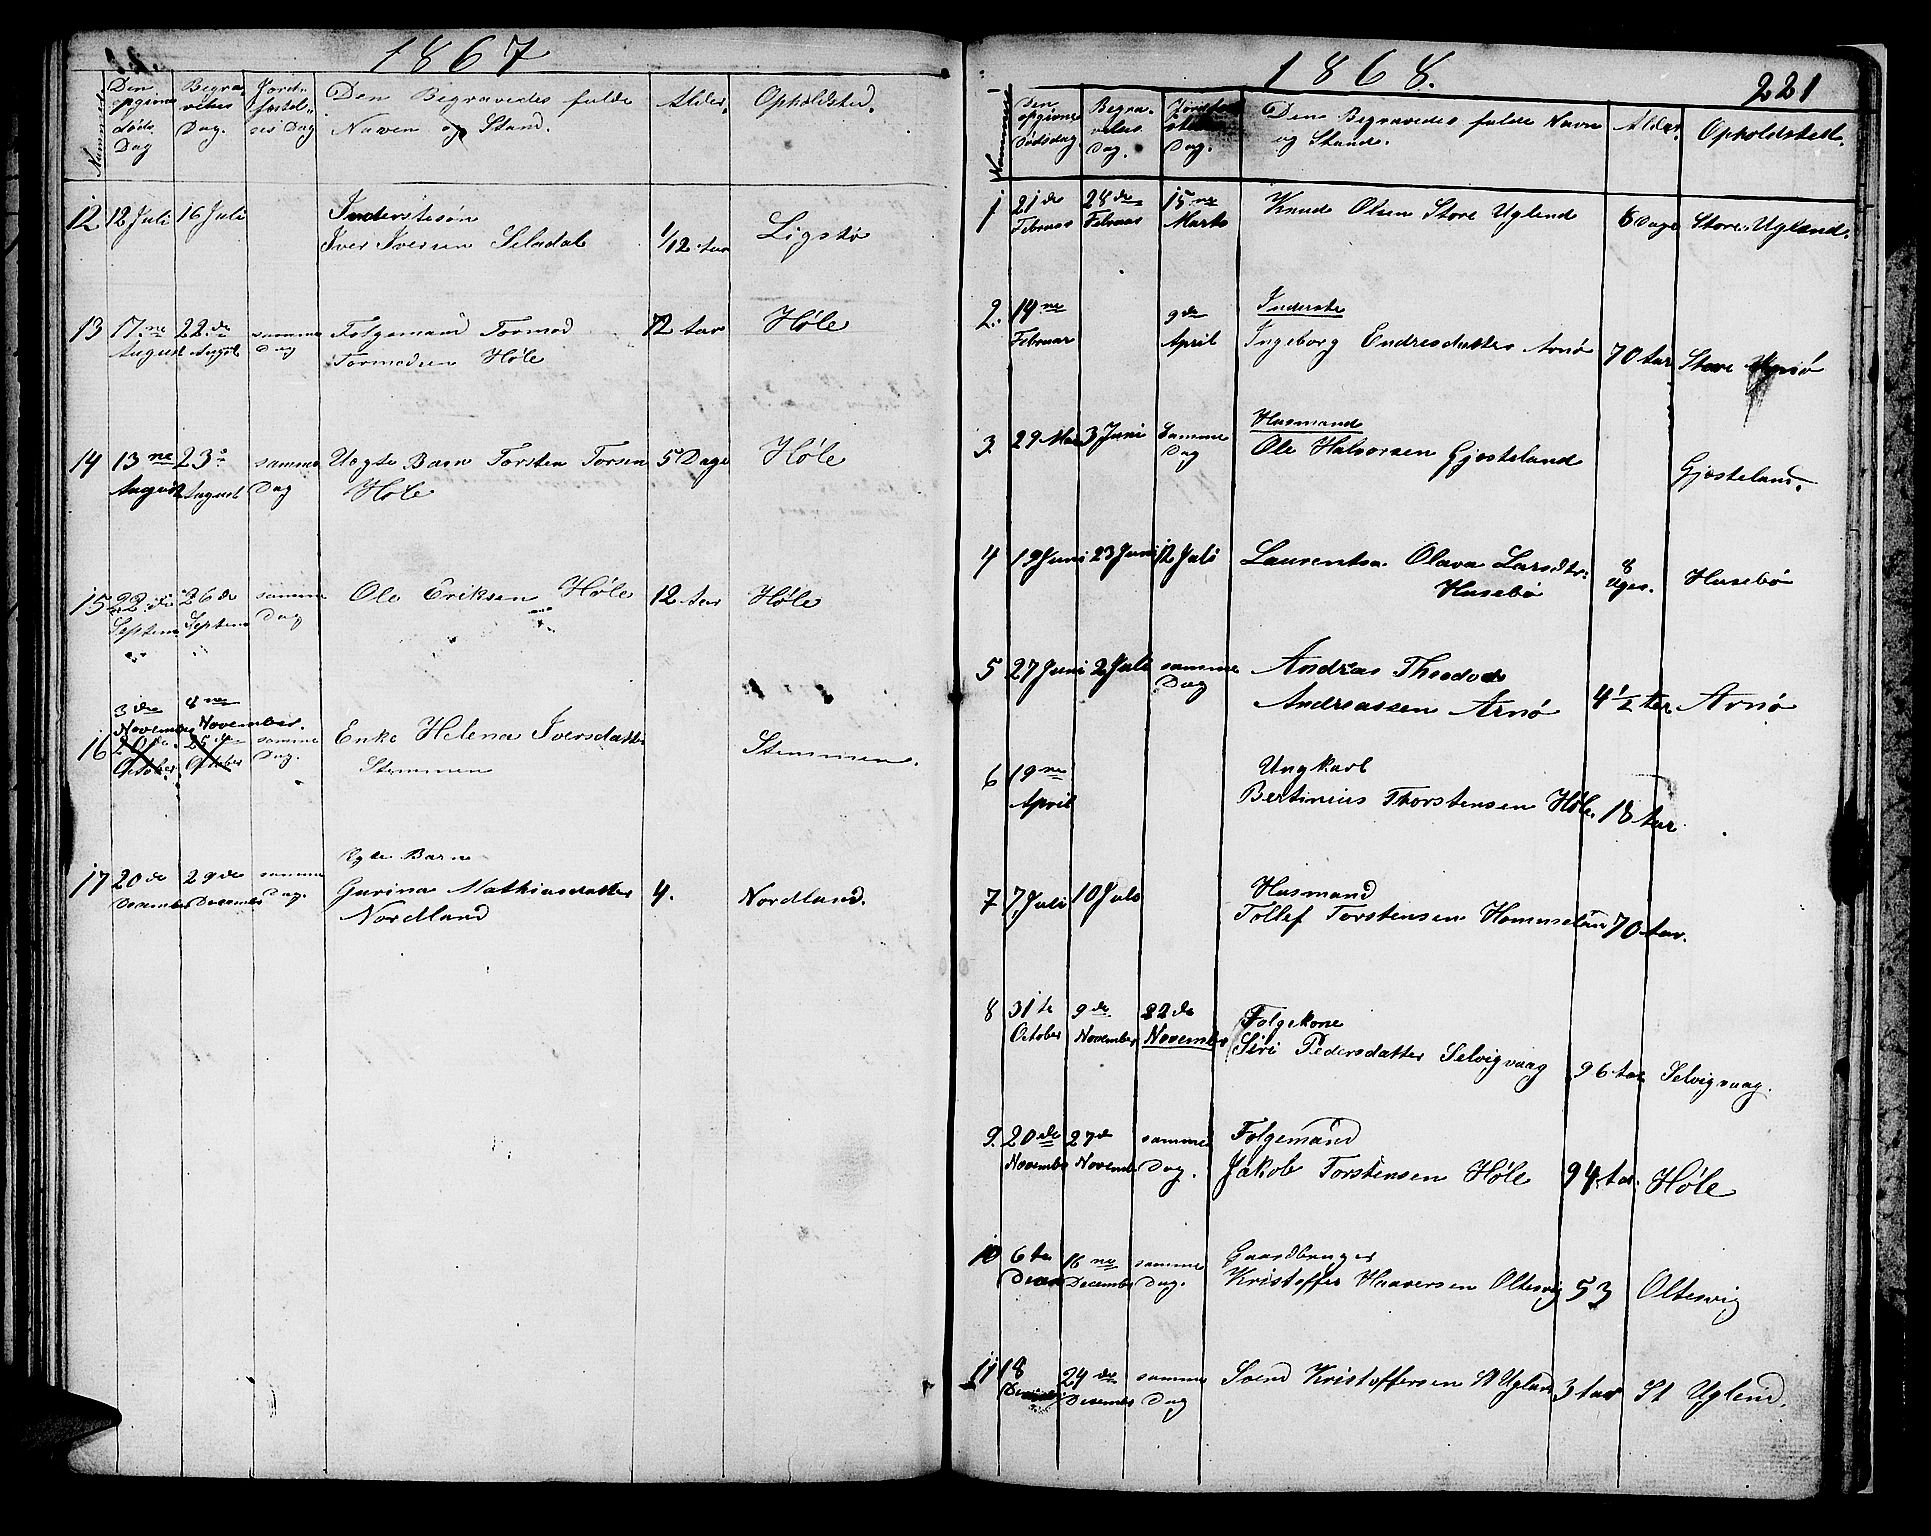 1867
Nummer
Den opgivne Døds Dag
Begravelses Dag.
Jordfæstelses Dag
Den Begravedes fulde Naven og Stand.
Alder.
Opholdsted.
12 12 Juli 16 Juli Inderstesøn
Iver Iversen Seladal 1/12 aar Ligstø
13 17ne August 22de Augst samme Dag Folgemand Tormod
Tormodsen Høle 72 aar Høle
14 13ne August 23 August samme Dag Uægte Barn Torsten Torsen
Høle 5 Dage Høle
15 22de Septem 26de Septem samme Dag Ole Eriksen Høle 12 aar Høle
3de November 8ne November.
16 20de October 25de October samme Dag. Enke Helena Iversdatter
Stemmen Stemmen.
17 20de December 29de December samme Dag. Ægte Barn
Gurina Mathiasdatter
Nordland 4. Nordland.
1868.
221
Nummer
Den opgivne Dødsdag
Begravelses Dag.
Dag.
Den Begravedes fulde Navn og Stand.
Alder.
Opholdsted.
1 21de Februar 28de Februar 15ne Marts Knud Olsen Store Ugland 6 Dage Store Ugland.
2. 14ne Februar 9de April Inderste
Ingeborg Endresdatter Arnø 70 aar Store
3. 29 Mai 3 Juni Samme Dag Husmand
Ole Halvorsen Gjosteland Gjosteland.
4 19 Juni 23 Juni 12 Juli Laurentsa Olava Larsdtr.
Husebø 8 Uger. Husebø
5 27 Juni 2 Juli samme Dag Andreas Theodor
Andreassen Arnø 4 1/2 aar Arnø
6 19ne April Ungkarl
Bertinius Thorstensen Høle. 18 aar
7 7 Juli 10 Juli Husmand
Tollef Torstensen Hommeland 70 aar.
8 31te October 9de November 22de November Folgekone
Siri Pedersdatter Selvigvaag 96 aar Selvigvaag.
9. 20de November 27de November samme Dag. Folgemand
Jakob Torstensen Høle 94 aar. Høle
10 6te 16ne December samme Dag. Gaardbruger
Kristoffer Haaversen Oltesvig 53 Oltesvig
11 18 24de December samme Dag Svend Kristoffersen St Ugland 3 aar St Uglend.